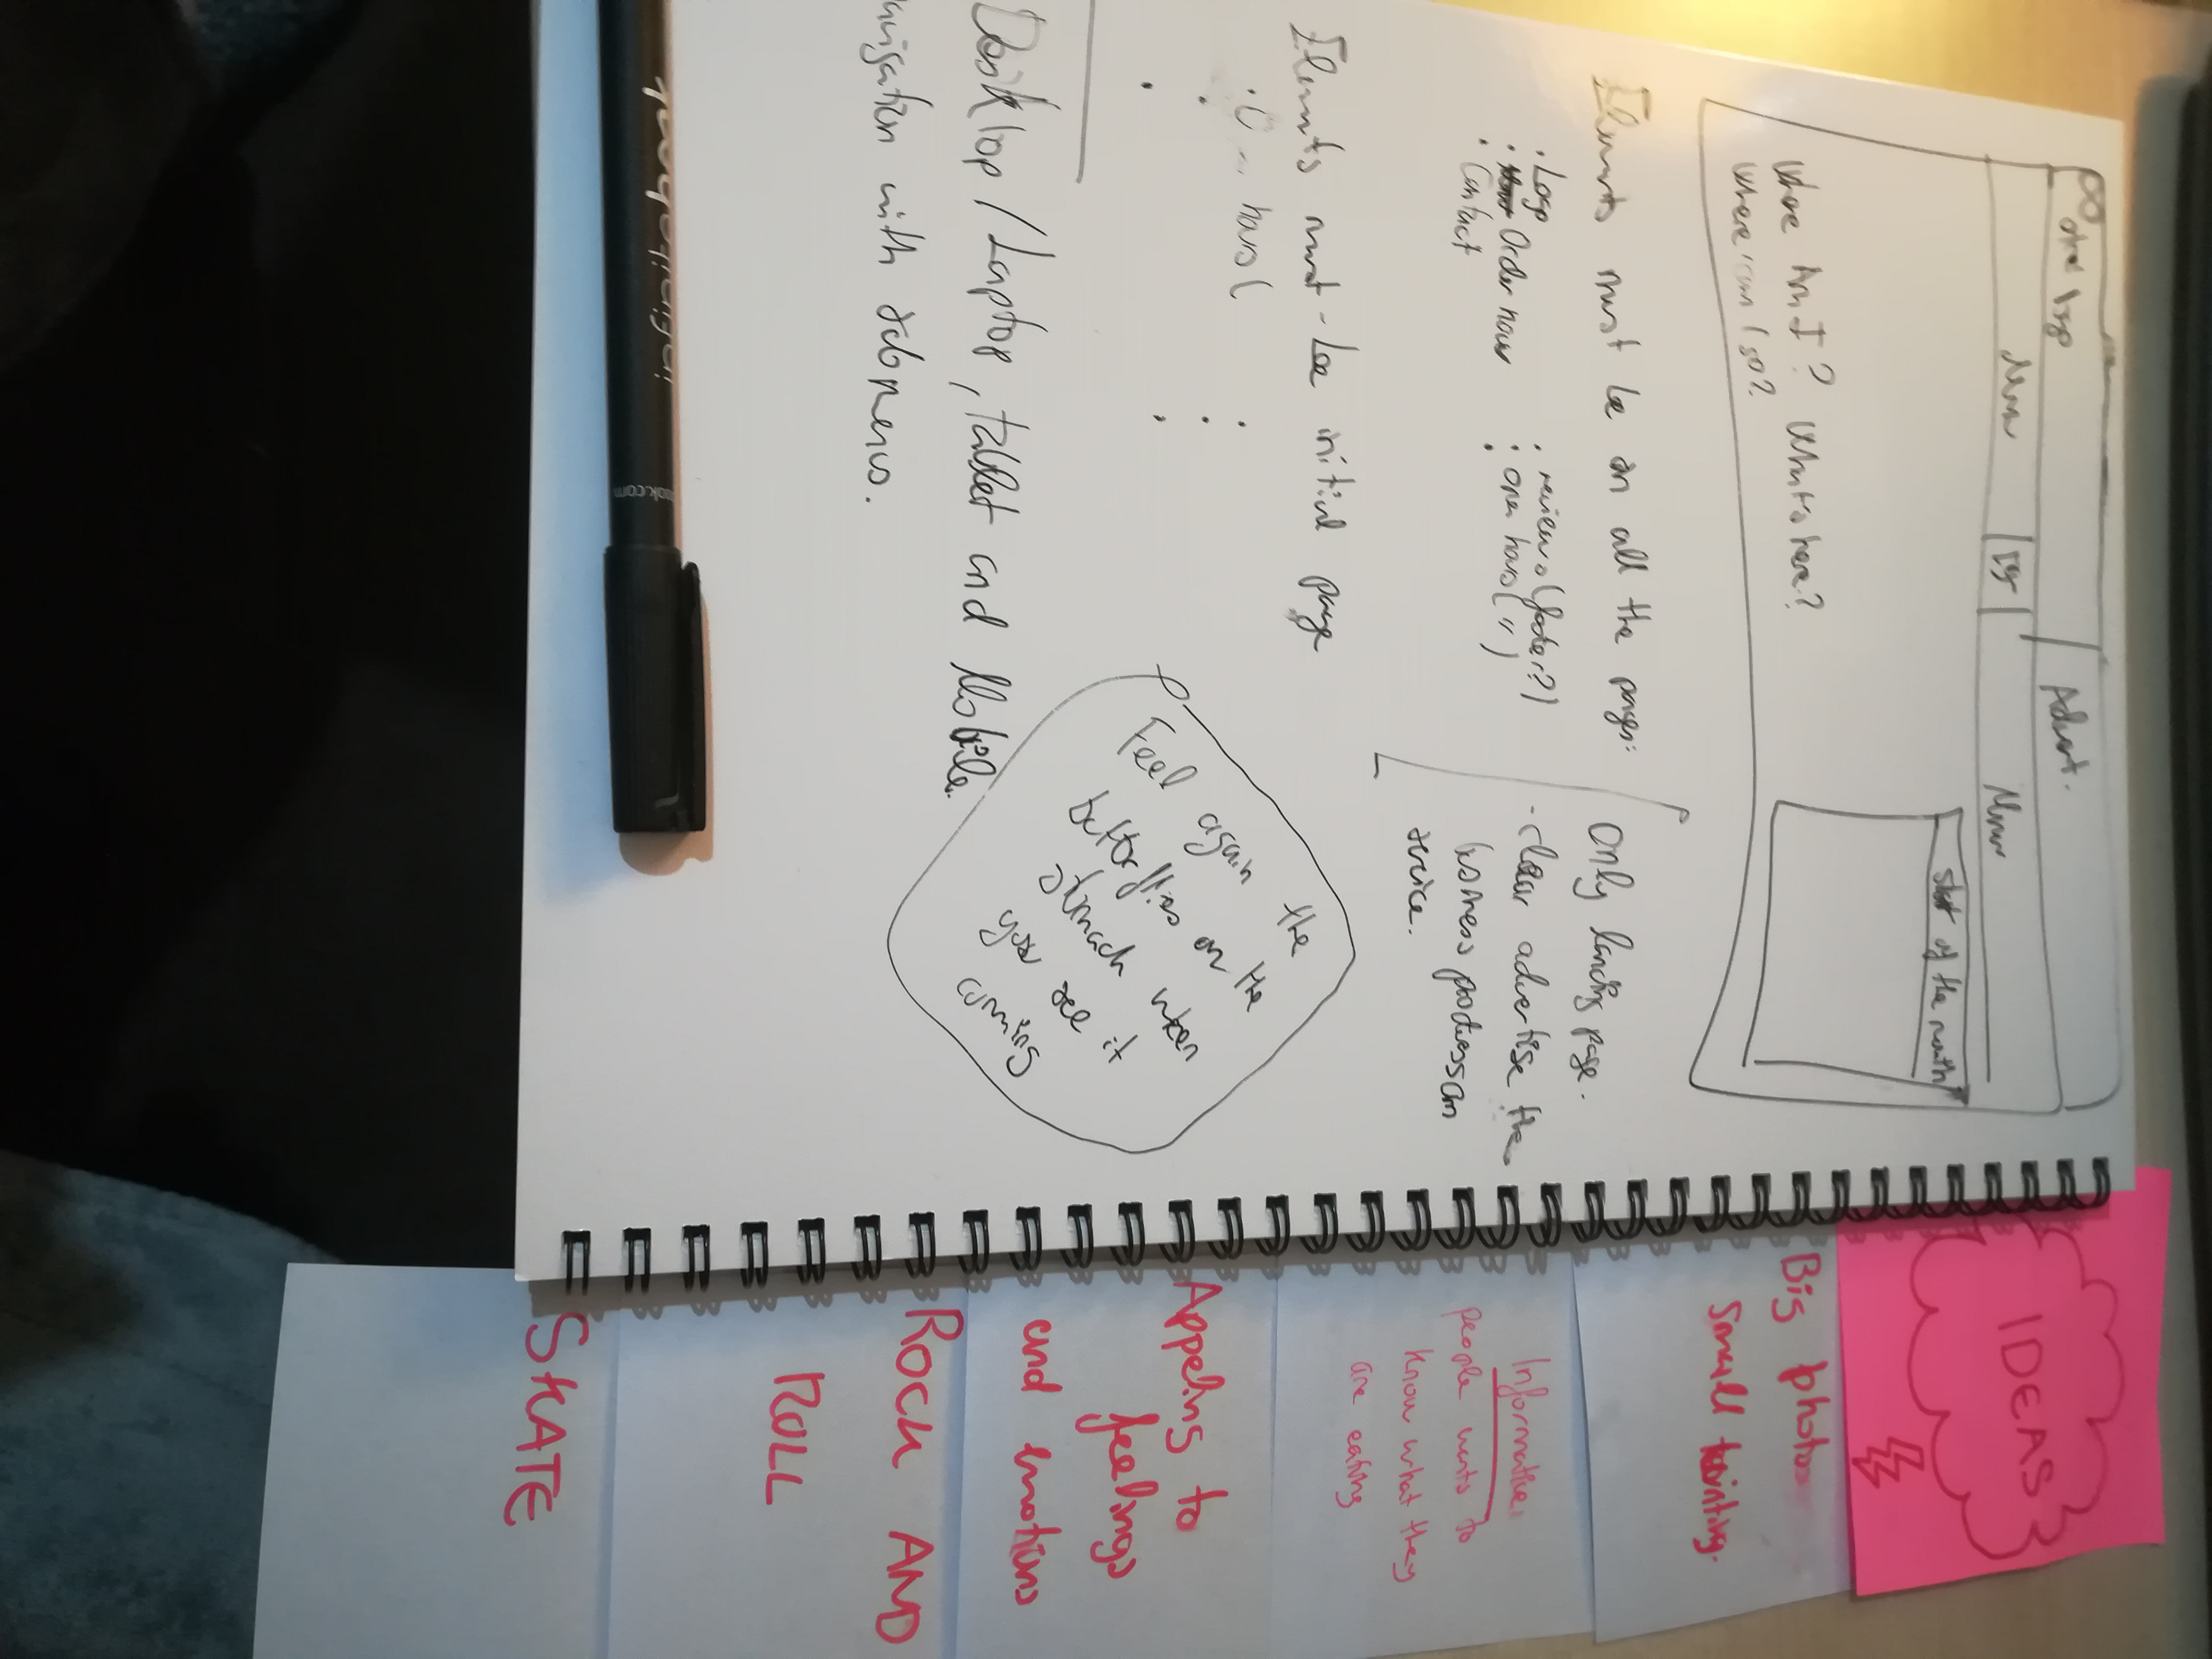 Advert.
Menu
Menu
Where Am I? What is here?
Where can I go?
of the month
Elements must be on all the pages:
. Logo
. Order now
. Contact
. reviews (footer?)
. open hours (")
Only landing page.
- clear advertise the
business products on
service.
Elements must-be initial page
hours (
Feel again the
butterflies on the
stomach when
you see it
coming
Desktop / Laptop, tablet and Mobile.
navigation with
IDEAS
Big photos
Small
Informative:
people wants to
know what they
are eating
Appeling to
feelings
and emotions
ROCK AND
ROLL
SKATE
ook.com